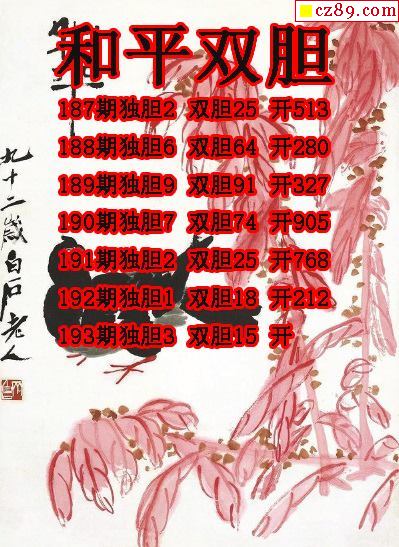 cz89.com
和平双胆
187期独胆2 双胆25 开513
188期独胆6 双胆64 开280
189期独胆9 双胆91 开327
190期独胆7 双胆74 开905
191期独胆2 双胆25 开768
192期独胆1 双胆18 开212
193期独胆3 双胆15 开
九十二岁白石老人